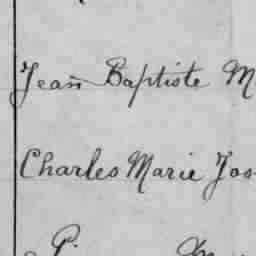 Jean Baptiste M
Charles Marie Jos